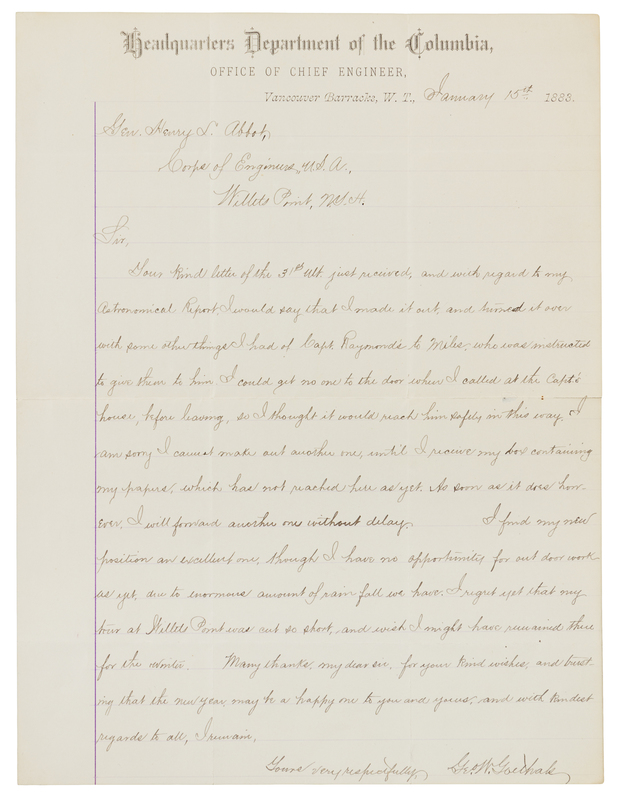 Headquarters Department of the Columbia,
OFFICE OF CHIEF ENGINEER,
Vancouver Barracks, W. T., January 15th 1883.
Gen. Henry L. Abbot,
Corps of Engineers, U.S.A.,
Willets Point, N.Y.H.
Sir,
Your kind letter of the 31st ult. just received, and with regard to my
Astronomical Report I would say that I made it out, and turned it over
with some other things I had of Capt. Raymond's to Miles, who was instructed
to give them to him. I could get no one to the door when I called at the Capt's
house, before leaving, so I thought it would reach him safely in this way. I
am sorry I cannot make out another one, until I receive my box containing
my papers, which has not reached here as yet. As soon as it does how-
ever, I will forward another one without delay. I find my new
position an excellent one, though I have no opportunity for out door work
as yet, due to enormous amount of rain fall we have. I regret yet that my
tour at Willets Point was cut so short, and wish I might have remained there
for the winter. Many thanks, my dear sir, for your kind wishes, and trust-
ing that the new year may be a happy one to you and yours, and with kindest
regards to all, I remain,
Yours very respectfully, Geo. W. Goethals